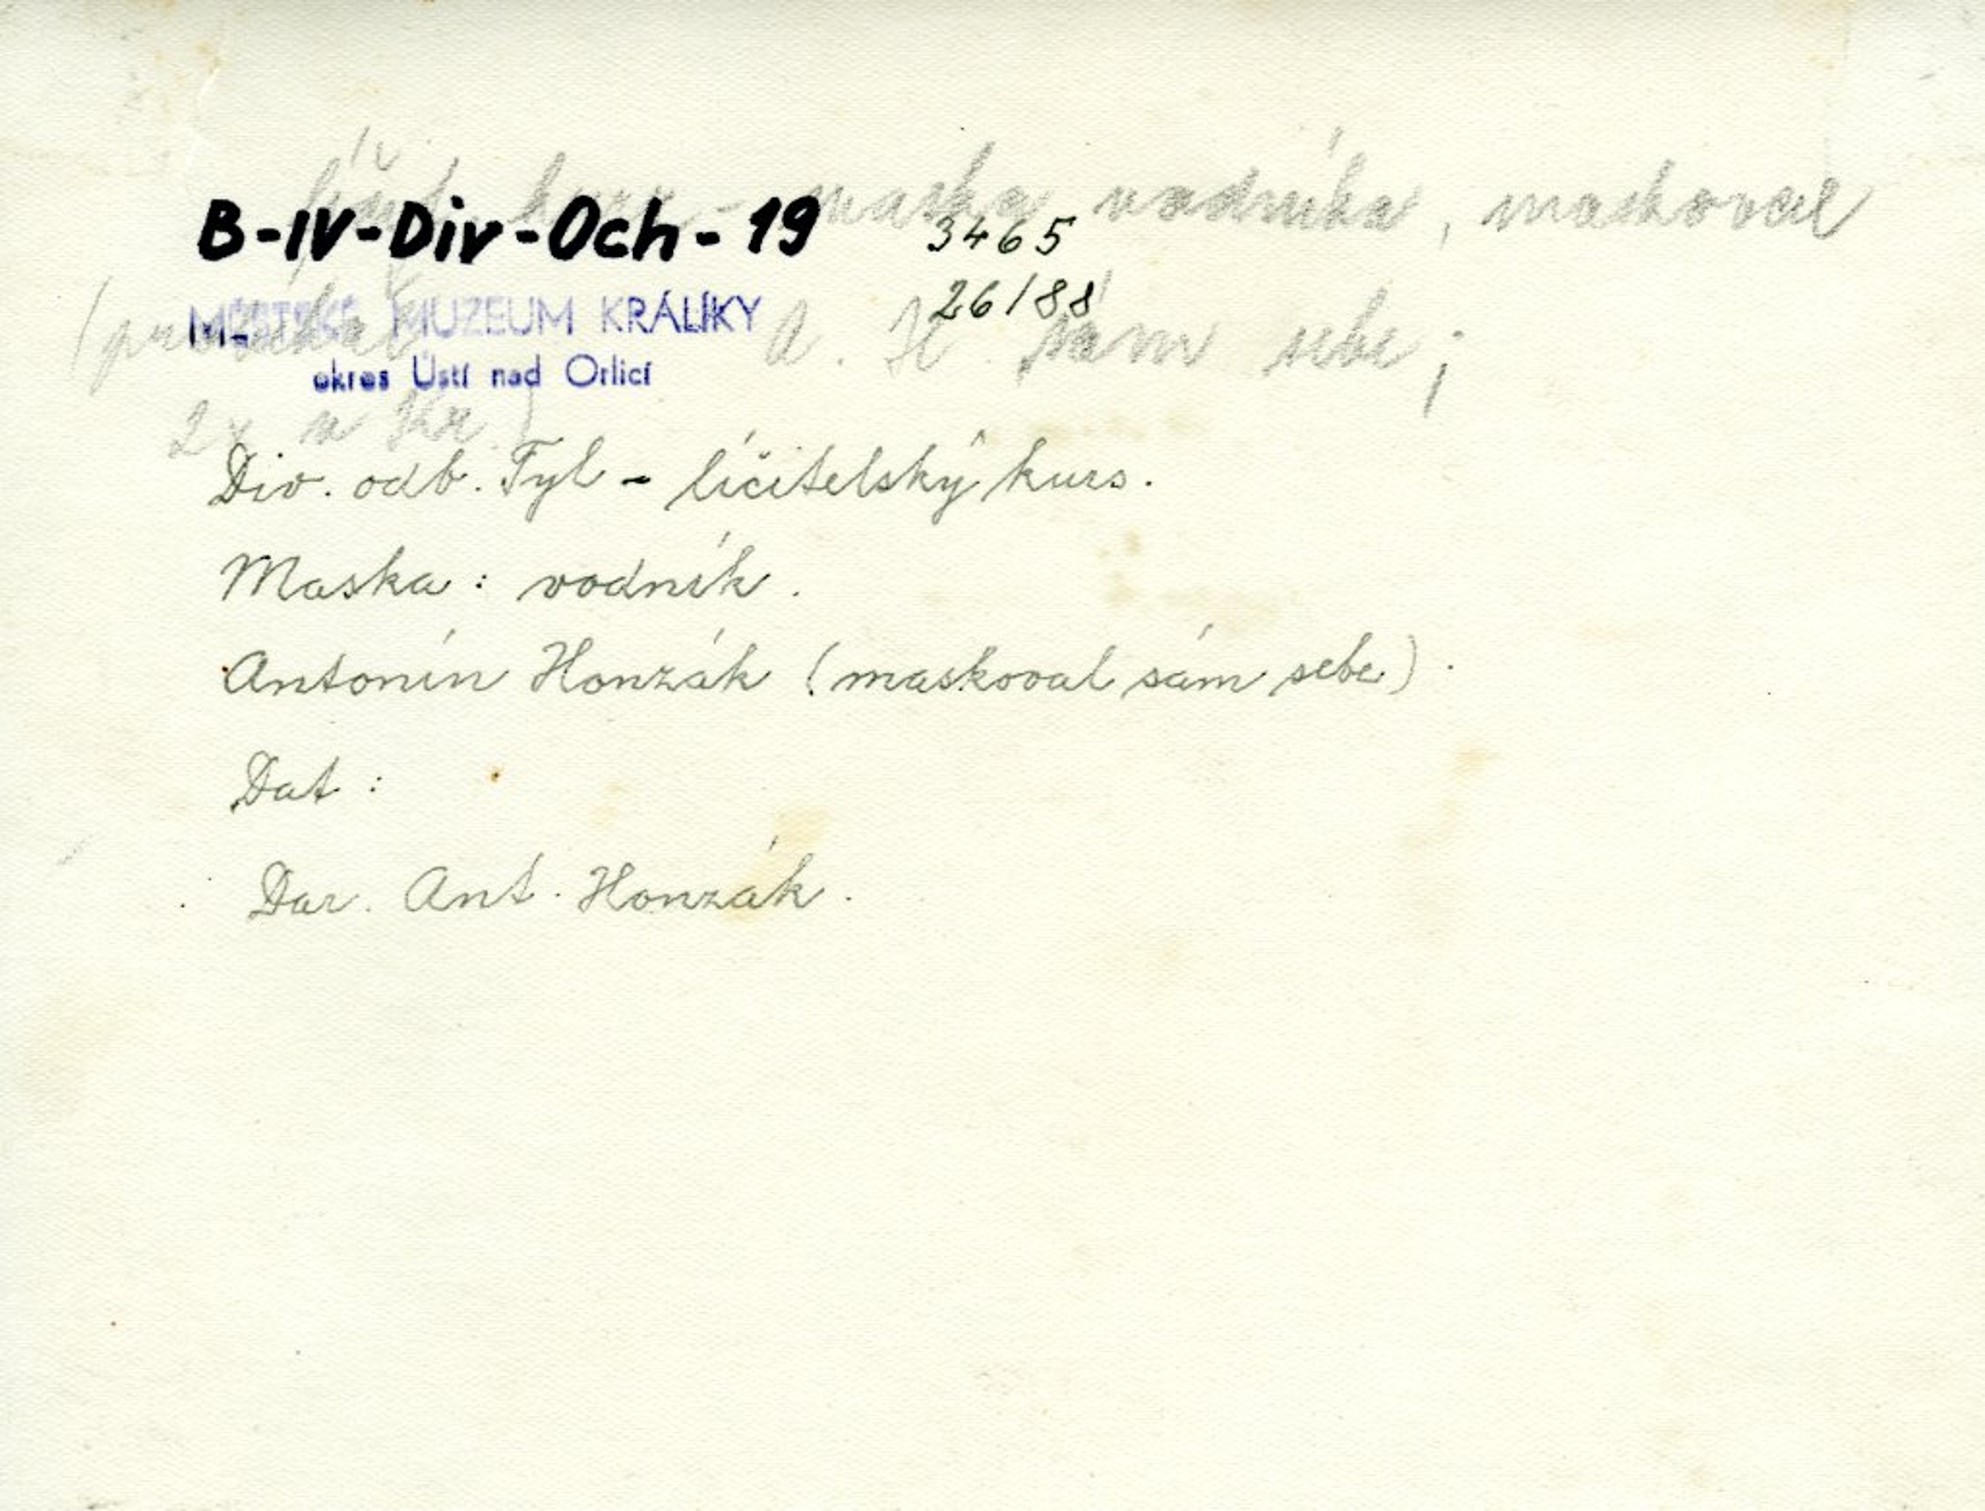 líčit. kurs - maska vodníka, maskoval
B-IV-Div-Och-19 3465
26/88
MĚSTSKÉ MUZEUM KRÁLÍKY
A. H. sám sebe;
okres Ústí nad Orlicí
2x v Kr.)
Div. odb. Tyl - líčitelský kurs.
Maska: vodník.
Antonín Honzák (maskoval sám sebe).
Dat:
Dar. Ant. Honzák.